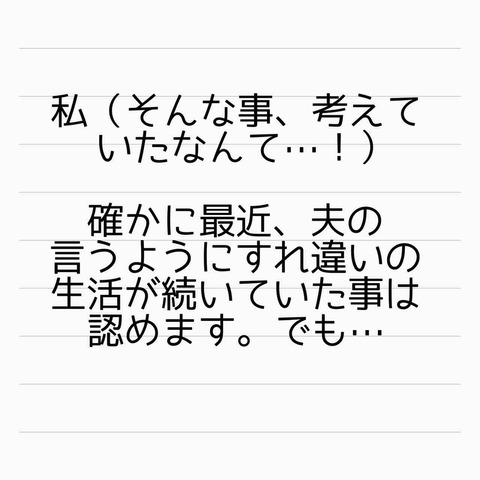 私（そんな事、考えて
いたなんて…！）
確かに最近、夫の
言うようにすれ違いの
生活が続いていた事は
認めます。でも…